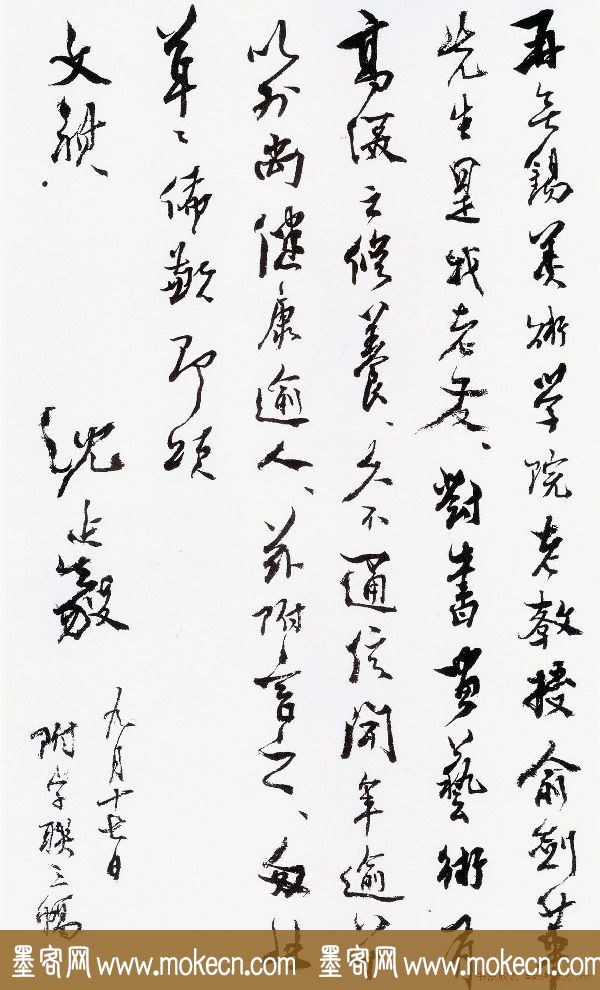 再无锡美術学院老教授俞剑華
先生是我老友、對书画藝術有
高深之修養、久不通信闻年逾八
以外尚健康逾人、并附言之、匆此
草〻佈歉即頌
文祺.
沈延毅
九月十七日
附字联三幅
墨客网www.mokecn.com 墨客网www.mokecn.com